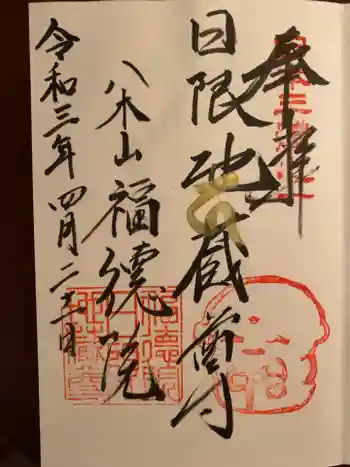 奉拝
日限地蔵尊
八木山 福徳院
令和三年 四月二十二日